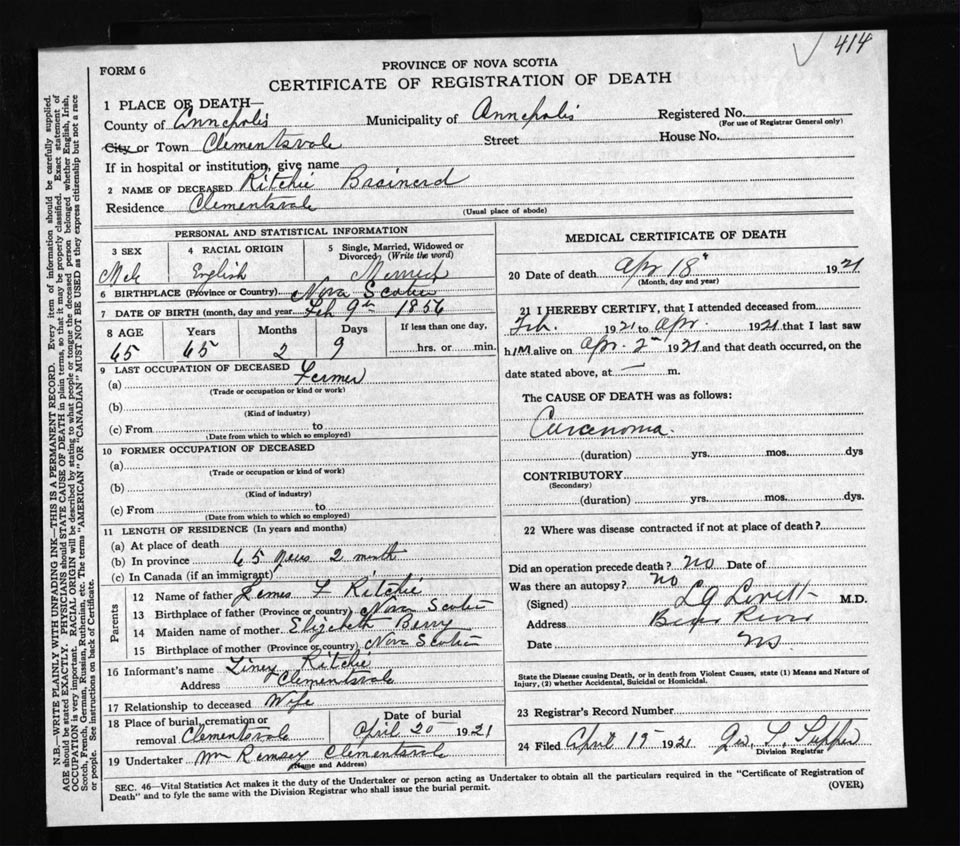 √ 414
FORM 6
PROVINCE OF NOVA SCOTIA
CERTIFICATE OF REGISTRATION OF DEATH
1 PLACE OF DEATH—
County of Annapolis Municipality of Annapolis Registered No.
(For use of Registrar General only)
City or Town Clementsvale Street House No.
If in hospital or institution, give name
2 NAME OF DECEASED Ritchie Brainerd
Residence Clementsvale
(Usual place of abode)
PERSONAL AND STATISTICAL INFORMATION
3 SEX 4 RACIAL ORIGIN 5 Single, Married, Widowed or
Divorced (Write the word)
Male English Married
6 BIRTHPLACE (Province or Country) Nova Scotia
7 DATE OF BIRTH (month, day and year) Feb 9th 1856
8 AGE Years Months Days If less than one day,
65 65 2 9 hrs. or min.
9 LAST OCCUPATION OF DECEASED
(a) Farmer
(Trade or occupation or kind or work)
(b)
(Kind of industry)
(c) From to
(Date from which to which so employed)
10 FORMER OCCUPATION OF DECEASED
(a)
(Trade or occupation or kind of work)
(b)
(Kind of industry)
(c) From to
(Date from which to which so employed)
11 LENGTH OF RESIDENCE (In years and months)
(a) At place of death
(b) In province 65 years 2 month
(c) In Canada (if an immigrant)
Parents
12 Name of father James F Ritchie
13 Birthplace of father (Province or country) Nova Scotia
14 Maiden name of mother Elizabeth Berry
15 Birthplace of mother (Province or country) Nova Scotia
16 Informant's name Ritchie
Address Clementsvale
17 Relationship to deceased Wife
18 Place of burial, cremation or Date of burial
removal Clementsvale April 20 1921
19 Undertaker Wm Ramsey Clementsvale
(Name and Address)
MEDICAL CERTIFICATE OF DEATH
20 Date of death Apr 18 1921
(Month, day and year)
21 I HEREBY CERTIFY, that I attended deceased from
Feb. 1921 to Apr. 1921 that I last saw
h im alive on Apr. 2nd 1921 and that death occurred, on the
date stated above, at — m.
The CAUSE OF DEATH was as follows:
Carcenoma.
(duration) yrs. mos. dys
CONTRIBUTORY
(Secondary)
(duration) yrs. mos. dys.
22 Where was disease contracted if not at place of death?
Did an operation precede death? no Date of
Was there an autopsy? no
(Signed) M.D.
Address Bear River
Date NS
State the Disease causing Death, or in death from Violent Causes, state (1) Means and Nature of
Injury, (2) whether Accidental, Suicidal or Homicidal.
23 Registrar's Record Number
24 Filed April 19 1921 Geo. L. Tupper
Division Registrar
SEC. 46—Vital Statistics Act makes it the duty of the Undertaker or person acting as Undertaker to obtain all the particulars required in the "Certificate of Registration of
Death" and to fyle the same with the Division Registrar who shall issue the burial permit. (OVER)
N.B.—WRITE PLAINLY WITH UNFADING INK—THIS IS A PERMANENT RECORD. Every item of information should be carefully supplied.
AGE should be stated EXACTLY. PHYSICIANS should STATE CAUSE OF DEATH in plain terms, so that it may be properly classified. Exact statement of
OCCUPATION is very important. RACIAL ORIGIN will be described by stating to what people or tongue the deceased person belonged whether English, Irish,
Scotch, French, German, Russian, Ruthenian, etc. The terms "AMERICAN" or "CANADIAN" MUST NOT BE USED as they express citizenship but not a race
or people. See instructions on back of Certificate.